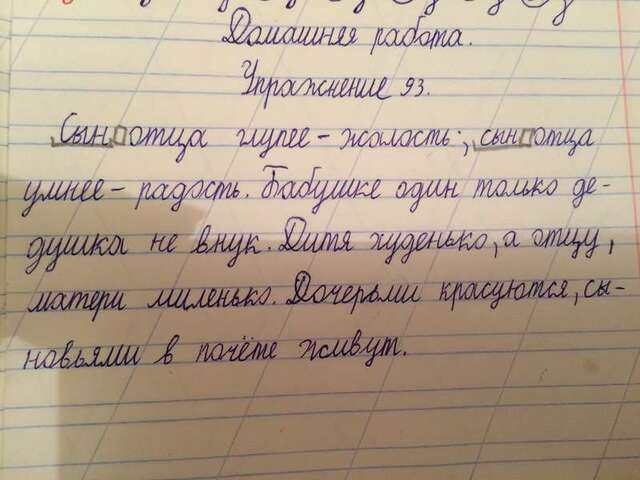 Домашняя работа.
Упражнение 93.
Сын отца глупее - жалость;, сын отца
умнее - радость. Бабушке один только де-
душка не внук. Дитя худенько, а отцу,
матери миленько. Дочерьми красуются, сы-
новьями в почёте живут.